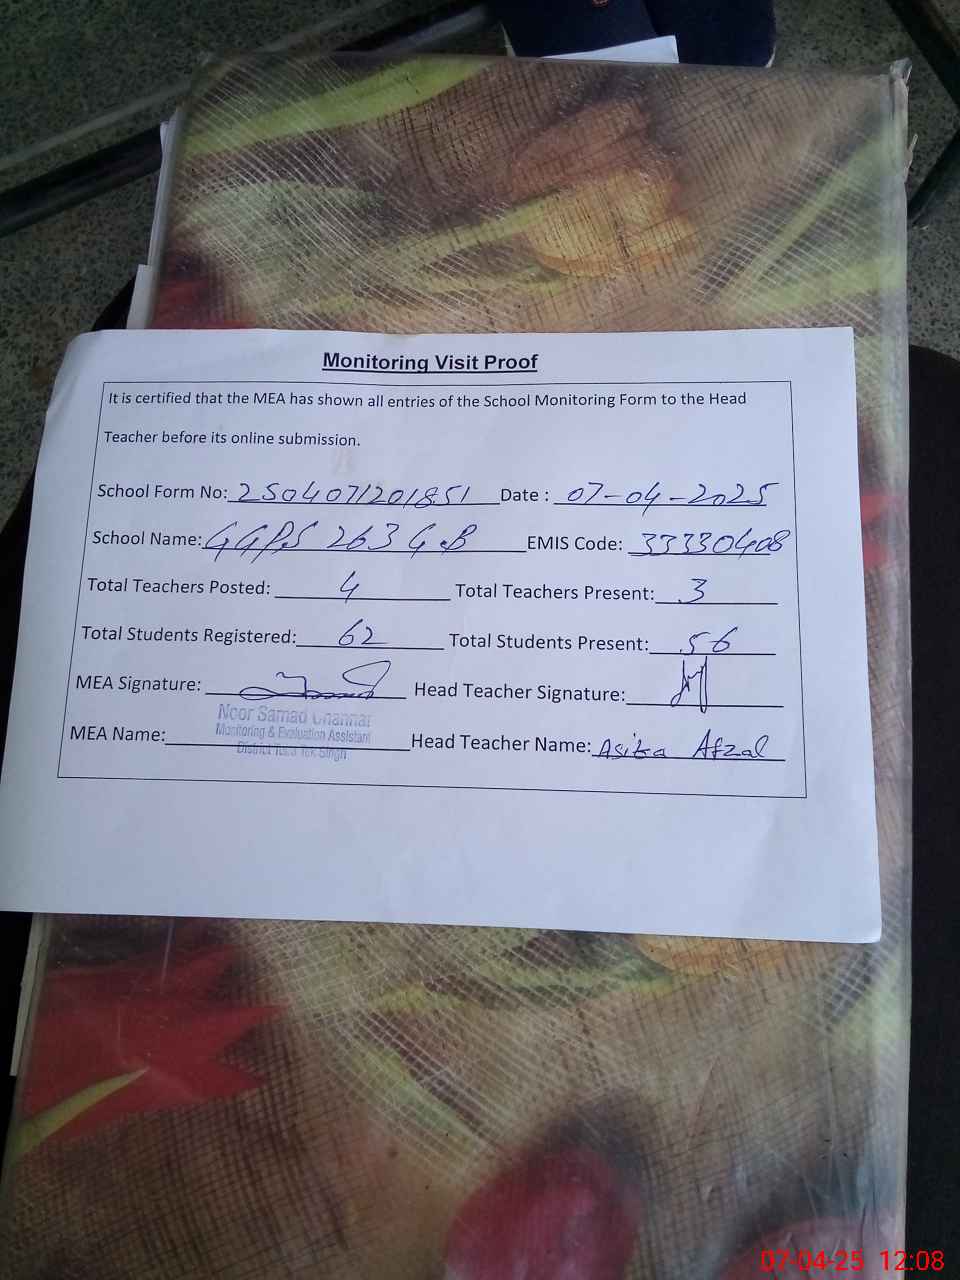 Monitoring Visit Proof
It is certified that the MEA has shown all entries of the School Monitoring Form to the Head
Teacher before its online submission.
School Form No: 2504071201851 Date : 07-04-2025
School Name: GGPS 263 G.B EMIS Code: 33330408
Total Teachers Posted: 4 Total Teachers Present: 3
Total Students Registered: 62 Total Students Present: 56
MEA Signature: Head Teacher Signature:
Noor Samad Channar
Monitoring & Evaluation Assistant
MEA Name: Head Teacher Name: Asifa Afzal
District Toba Tek Singh
07-04-25 12:08